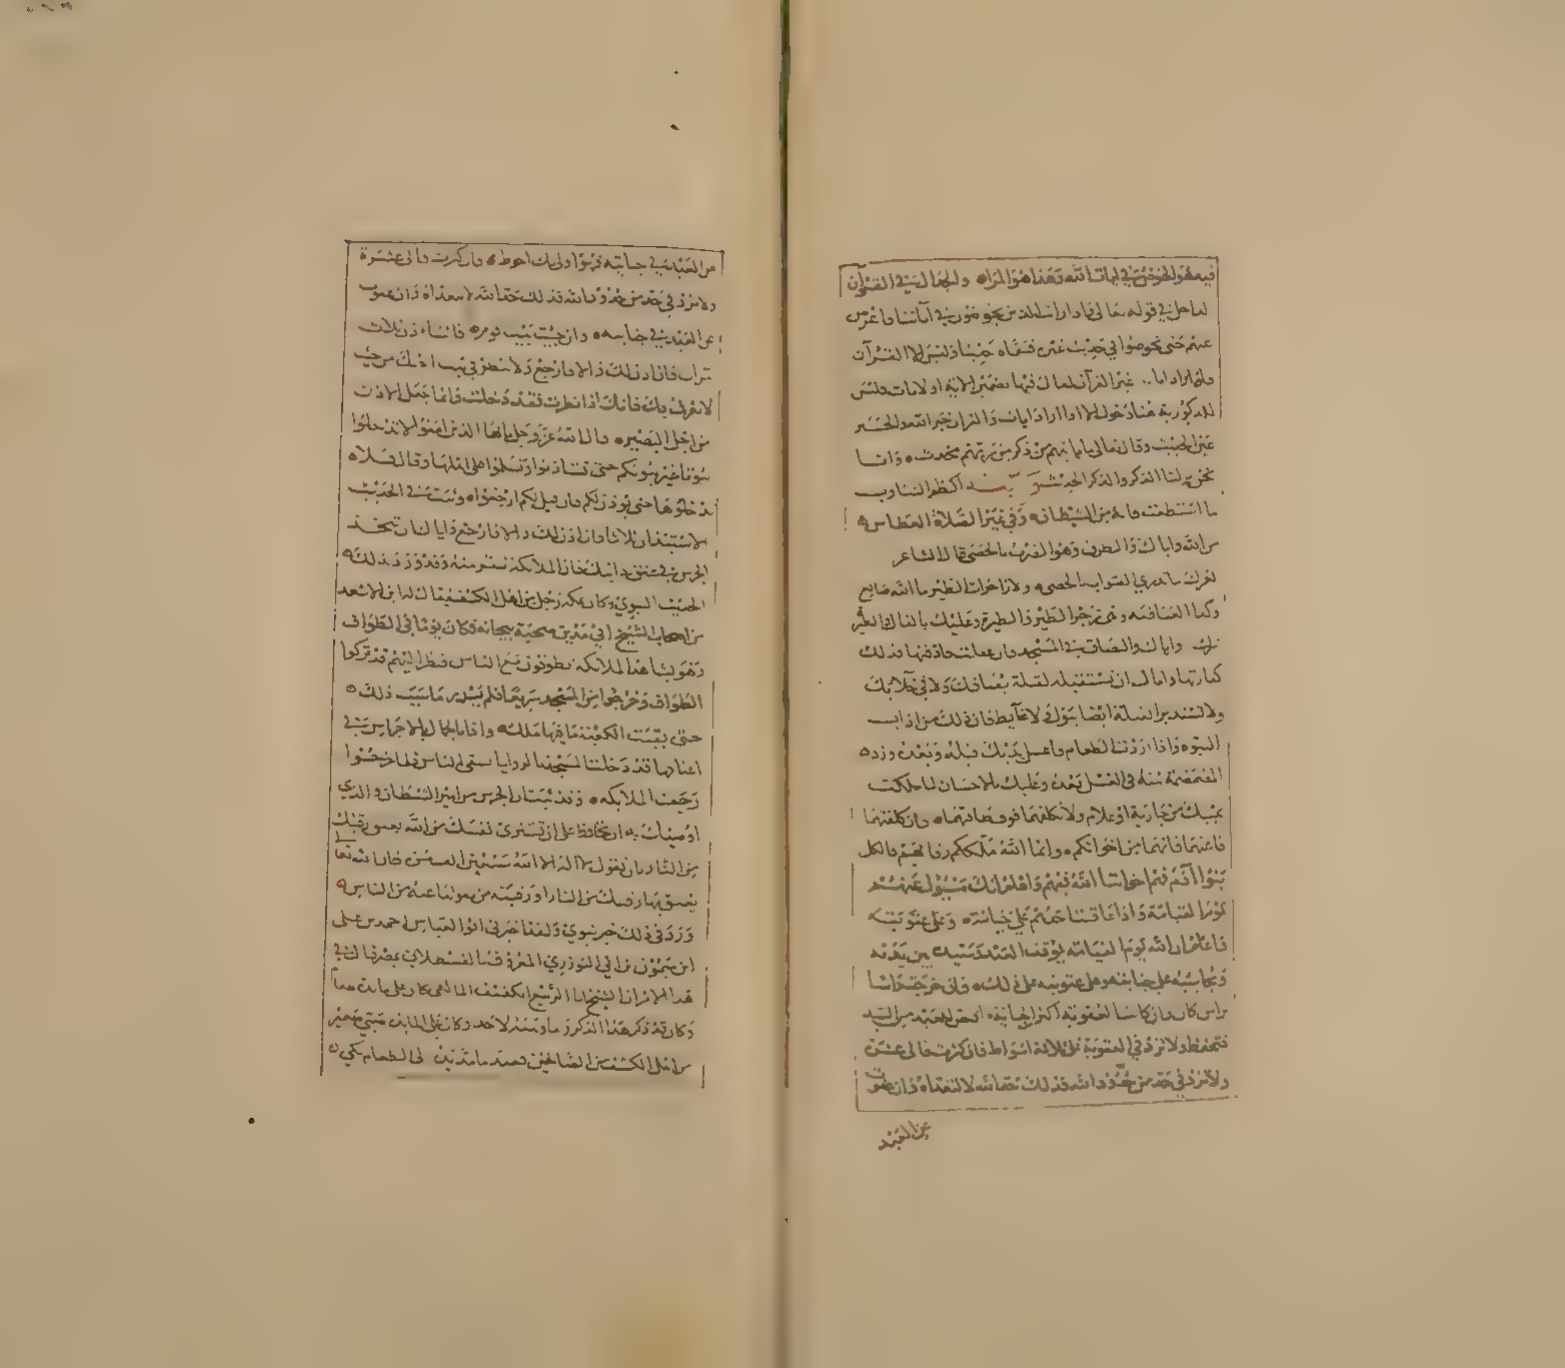 فيه فهو الخوض في ايات الله وهذا هو المراء والجدال في القرآن
لداخل في قوله تعالى واذا رايت الذين يخوضون في آياتنا فاعرض
عنهم حتى يخوضوا في حديث غيره فسماه حديثا وليس الا القرآن
غير القرآن لقال فيها بضمير الاية او الايات فليس
للذكورية هنا دخول الا اذا اراد ايات والقران خبر الله والخبر
عين الحديث وقال تعالى ما ياتيهم من ذكر من ربهم محدث وانا
نحن نزلنا الذكر والذكر الحديث اكظم التثاوب
ما استطعت فانه من الشيطان وفي غير الصلاة العطاس
من الله واياك والطرق وهو الضرب بالحصى قال الشاعر
لعمرك ما تدري الضوارب بالحصى ولا زاجرات الطير ما الله صانع
وكذا العيافة وهي زجر الطير والطيرة وعليك بالفال
واياك والبصاق في المسجد فان فعلت فادفنها فذلك
كفارتها واياك ان تستقبل القبلة ببصاقك ولا في خلائك
ولا تستدبر القبلة ايضا ببول ولا غايط فان ذلك من اداب
النبوة واذا اردت الطعام فاغسل يديك قبله وبعده وزد
المضمضة منه في الغسل بعده وعليك بالاحسان لما ملكت
يمينك من جارية او غلام ولا تكلفهما فوق طاقتهما وان كلفتهما
فاعنهما فانهما من اخوانكم وانما الله ملككم رقابهم فالكل
بنوا آدم فهم اخواننا الله فيهم واعلم انك مسئول عنهم
يوم القيامة واذا عاقبت احدهم على جنايته وعلى عقوبته
فاعلم ان الله يوم القيامة يوقف العبد وسيده بين يديه
ويحاسبه على جنايته وعلى عقوبته على ذلك فان خرج راسا
براس كان وان كانت العقوبة اكثر من الجناية اقتص للعبد من السيد
فتحفظ ولا تزد في العقوبة على ثلاثة اسواط فان كثرت فالى عشرة
ولا تزد الا في حد من حدود الله فذلك حد الله لا تتعداه وان عفوت
عن العبد
عن العبد في جنايته فهو اولى بك واحوط فان كثرت فالى عشرة
ولا تزد في حد من حدود الله فذلك حد الله لا تتعداه وان عفوت
عن العبد في جنايته وان جيت بيت قوم فاستاذن ثلاث
مرات فان اذن لك والا فارجع ولا تنظر في بيت اخيك من حيث
لا يعرف بك فانك اذا نظرت فقد دخلت وانما جعل الاذن
من اجل البصر قال الله عز وجل يا ايها الذين امنوا لا تدخلوا
بيوتا غير بيوتكم حتى تستاذنوا وتسلموا على اهلها وقال فلا
تدخلوها حتى يوذن لكم فان قيل لكم ارجعوا وثبت في الحديث
الاستئذان ثلاثا فان اذن لك والا فارجع واياك ان تتخذ
الجرس في عنق دابتك فان الملائكة تنفر منه وقد ورد ذلك
الحديث النبوي وكان بمكة رجل من اهل الكشف يقال له ابن الاسعد
من اصحاب الشيخ ابي مدين صحبه ببجاية فكان يوما في الطواف
وهو يشاهد الملائكة يطوفون مع الناس فنظر اليهم قد تركوا
الطواف وخرجوا من المسجد سريعا فلم يدر ما سبب ذلك
حتى بقيت الكعبة ما فيها ملك واذا بالجمال بالاجراس في
اعناقها قد دخلت المسجد بالروايا تسقي الناس فلما خرجوا
رجعت الملائكة وقد ثبت ان الجرس مزامير الشيطان والذي
اوصيك به ان تحافظ على ان تشتري نفسك من الله بعتق رقبتك
من النار بان تقول لا اله الا الله سبعين الف مرة فان الله تعالى
يعتق بها رقبتك من النار او رقبة من يقولها عنه من الناس
ورد في ذلك خبر نبوي ولقد اخبرني ابو العباس احمد بن علي
ابن ميمون بن التوزري المعروف بالقسطلاني بمصر قال في
هذا الامر ان الشيخ ابا الربيع الكفيف المالقي كان على مائدة طعام
وكان قد ذكر هذا الذكر وما وهبه لاحد وكان على المائدة صبي صغير
من اهل الكشف من الصالحين فعندما مد يده الى الطعام بكى